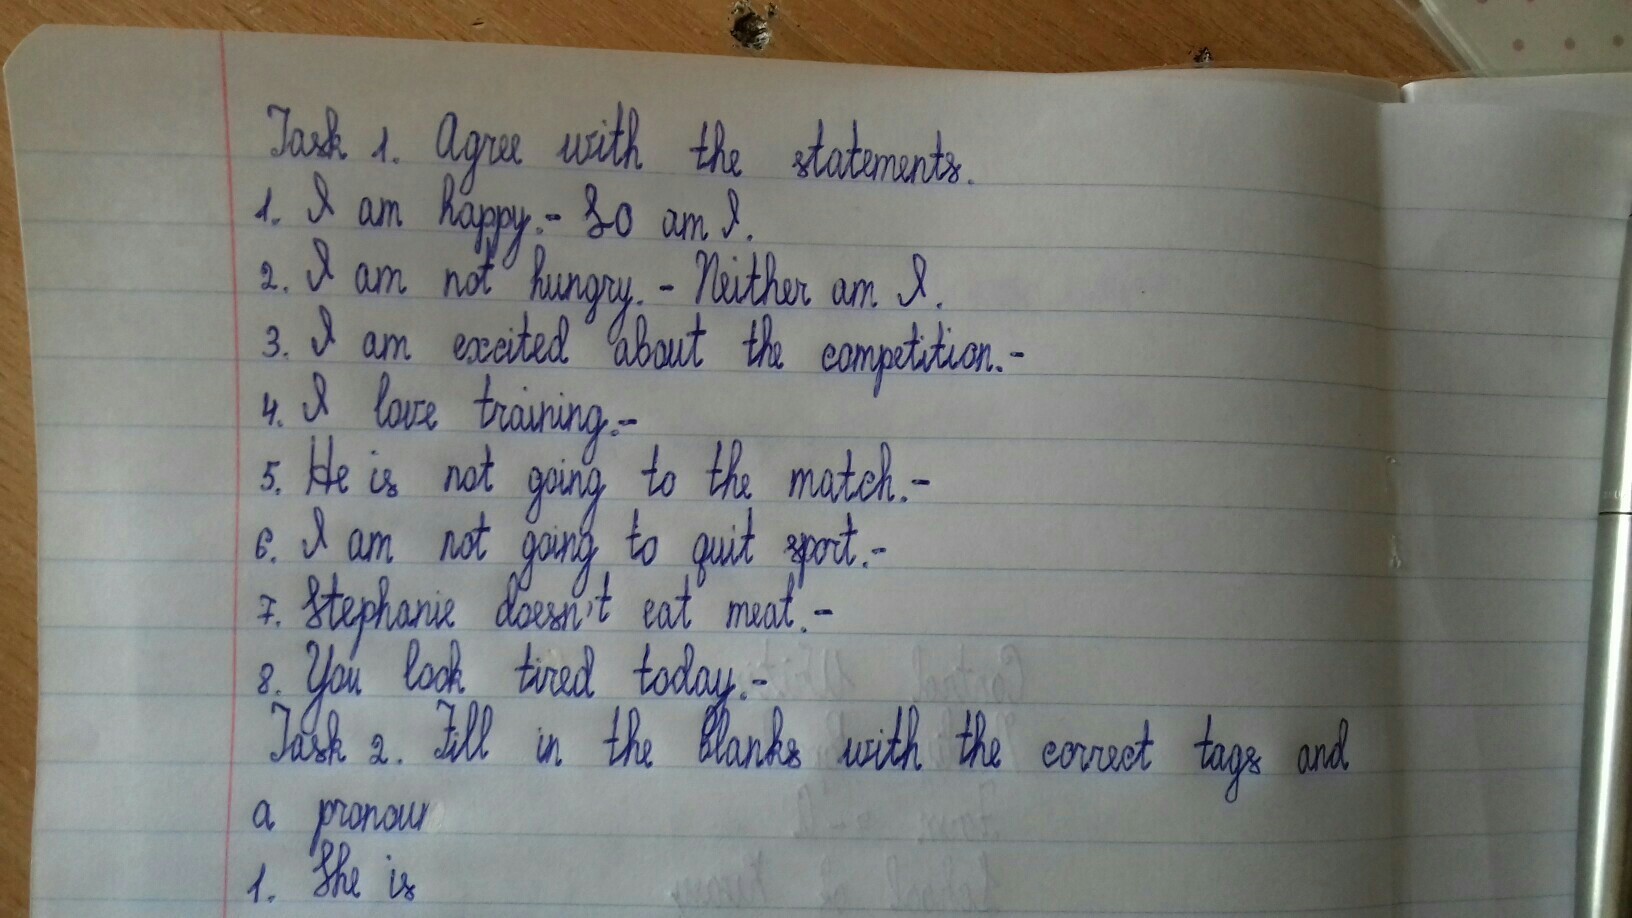 Task 1. Agree with the statements.
1. I am happy.- So am I.
2. I am not hungry.- Neither am I.
3. I am excited about the competition.-
4. I love training.-
5. He is not going to the match.-
6. I am not going to quit sport.-
7. Stephanie doesn't eat meat.-
8. You look tired today.-
Task 2. Fill in the blanks with the correct tags and
a pronoun
1. She is